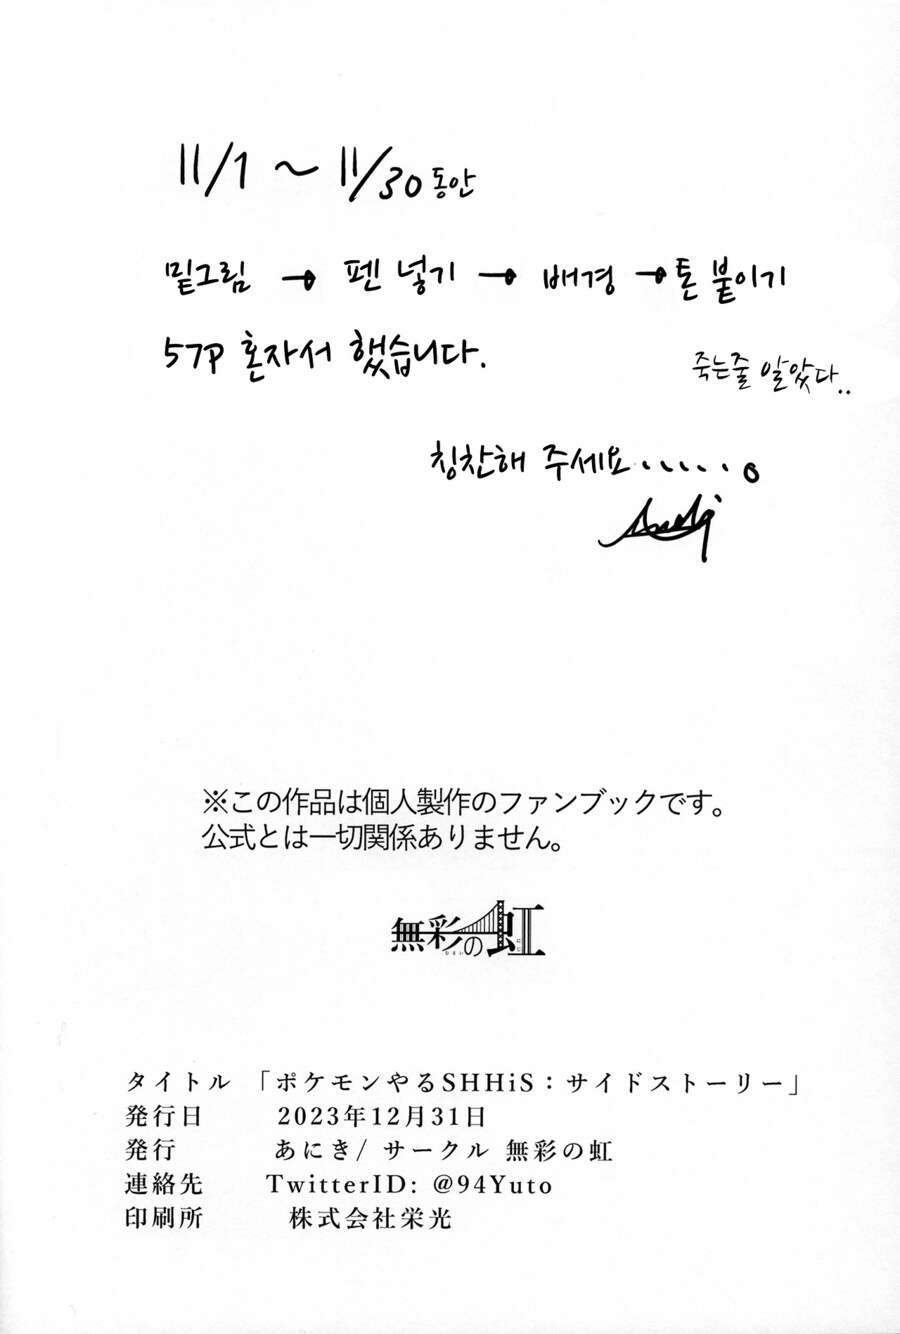 11/1 ~ 11/30 동안
밑그림 → 펜 넣기 → 배경 → 톤 붙이기
57P 혼자서 했습니다.
죽는줄 알았다..
칭찬해 주세요......。
※この作品は個人製作のファンブックです。
公式とは一切関係ありません。
無彩の虹
タイトル 「ポケモンやるSHHiS：サイドストーリー」
発行日 2023年12月31日
発行 あにき/ サークル 無彩の虹
連絡先 TwitterID: @94Yuto
印刷所 株式会社栄光